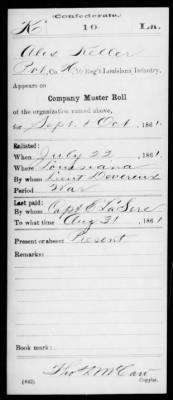 Confederate.
K 10 La.
Alex Keller
Pvt, Co. K, 10 Reg't Louisiana Infantry.
Appears on
Company Muster Roll
of the organization named above,
for Sept & Oct, 1861.
Enlisted:
When July 22, 1861.
Where Louisiana
By whom Lieut Devereux
Period War
Last paid:
By whom Capt E LaSere
To what time Aug 31, 1861.
Present or absent Present
Remarks:
Book mark:
Thos D McCaw
(642) Copyist.